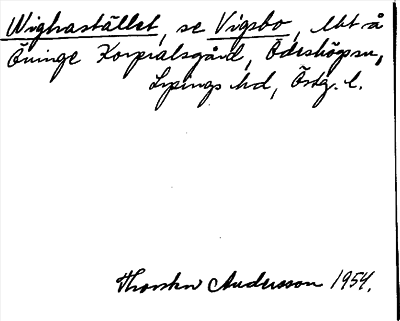 Wighastället, se Vigsbo, lht å
Öninge Korpralsgård, Ödeshögs sn,
Lysings hd, Östg. l.
Thorsten Andersson 1954.